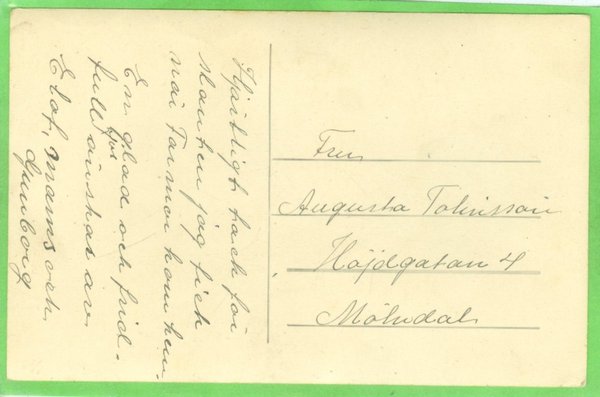 Hjärtligt tack för
slanten jag fick
när Farmor kom hem
En glad och frid-
full jul önskas av
Elof, mams och
Gunborg
Fru
Augusta Johnsson
Höjdgatan 4
Mölndal